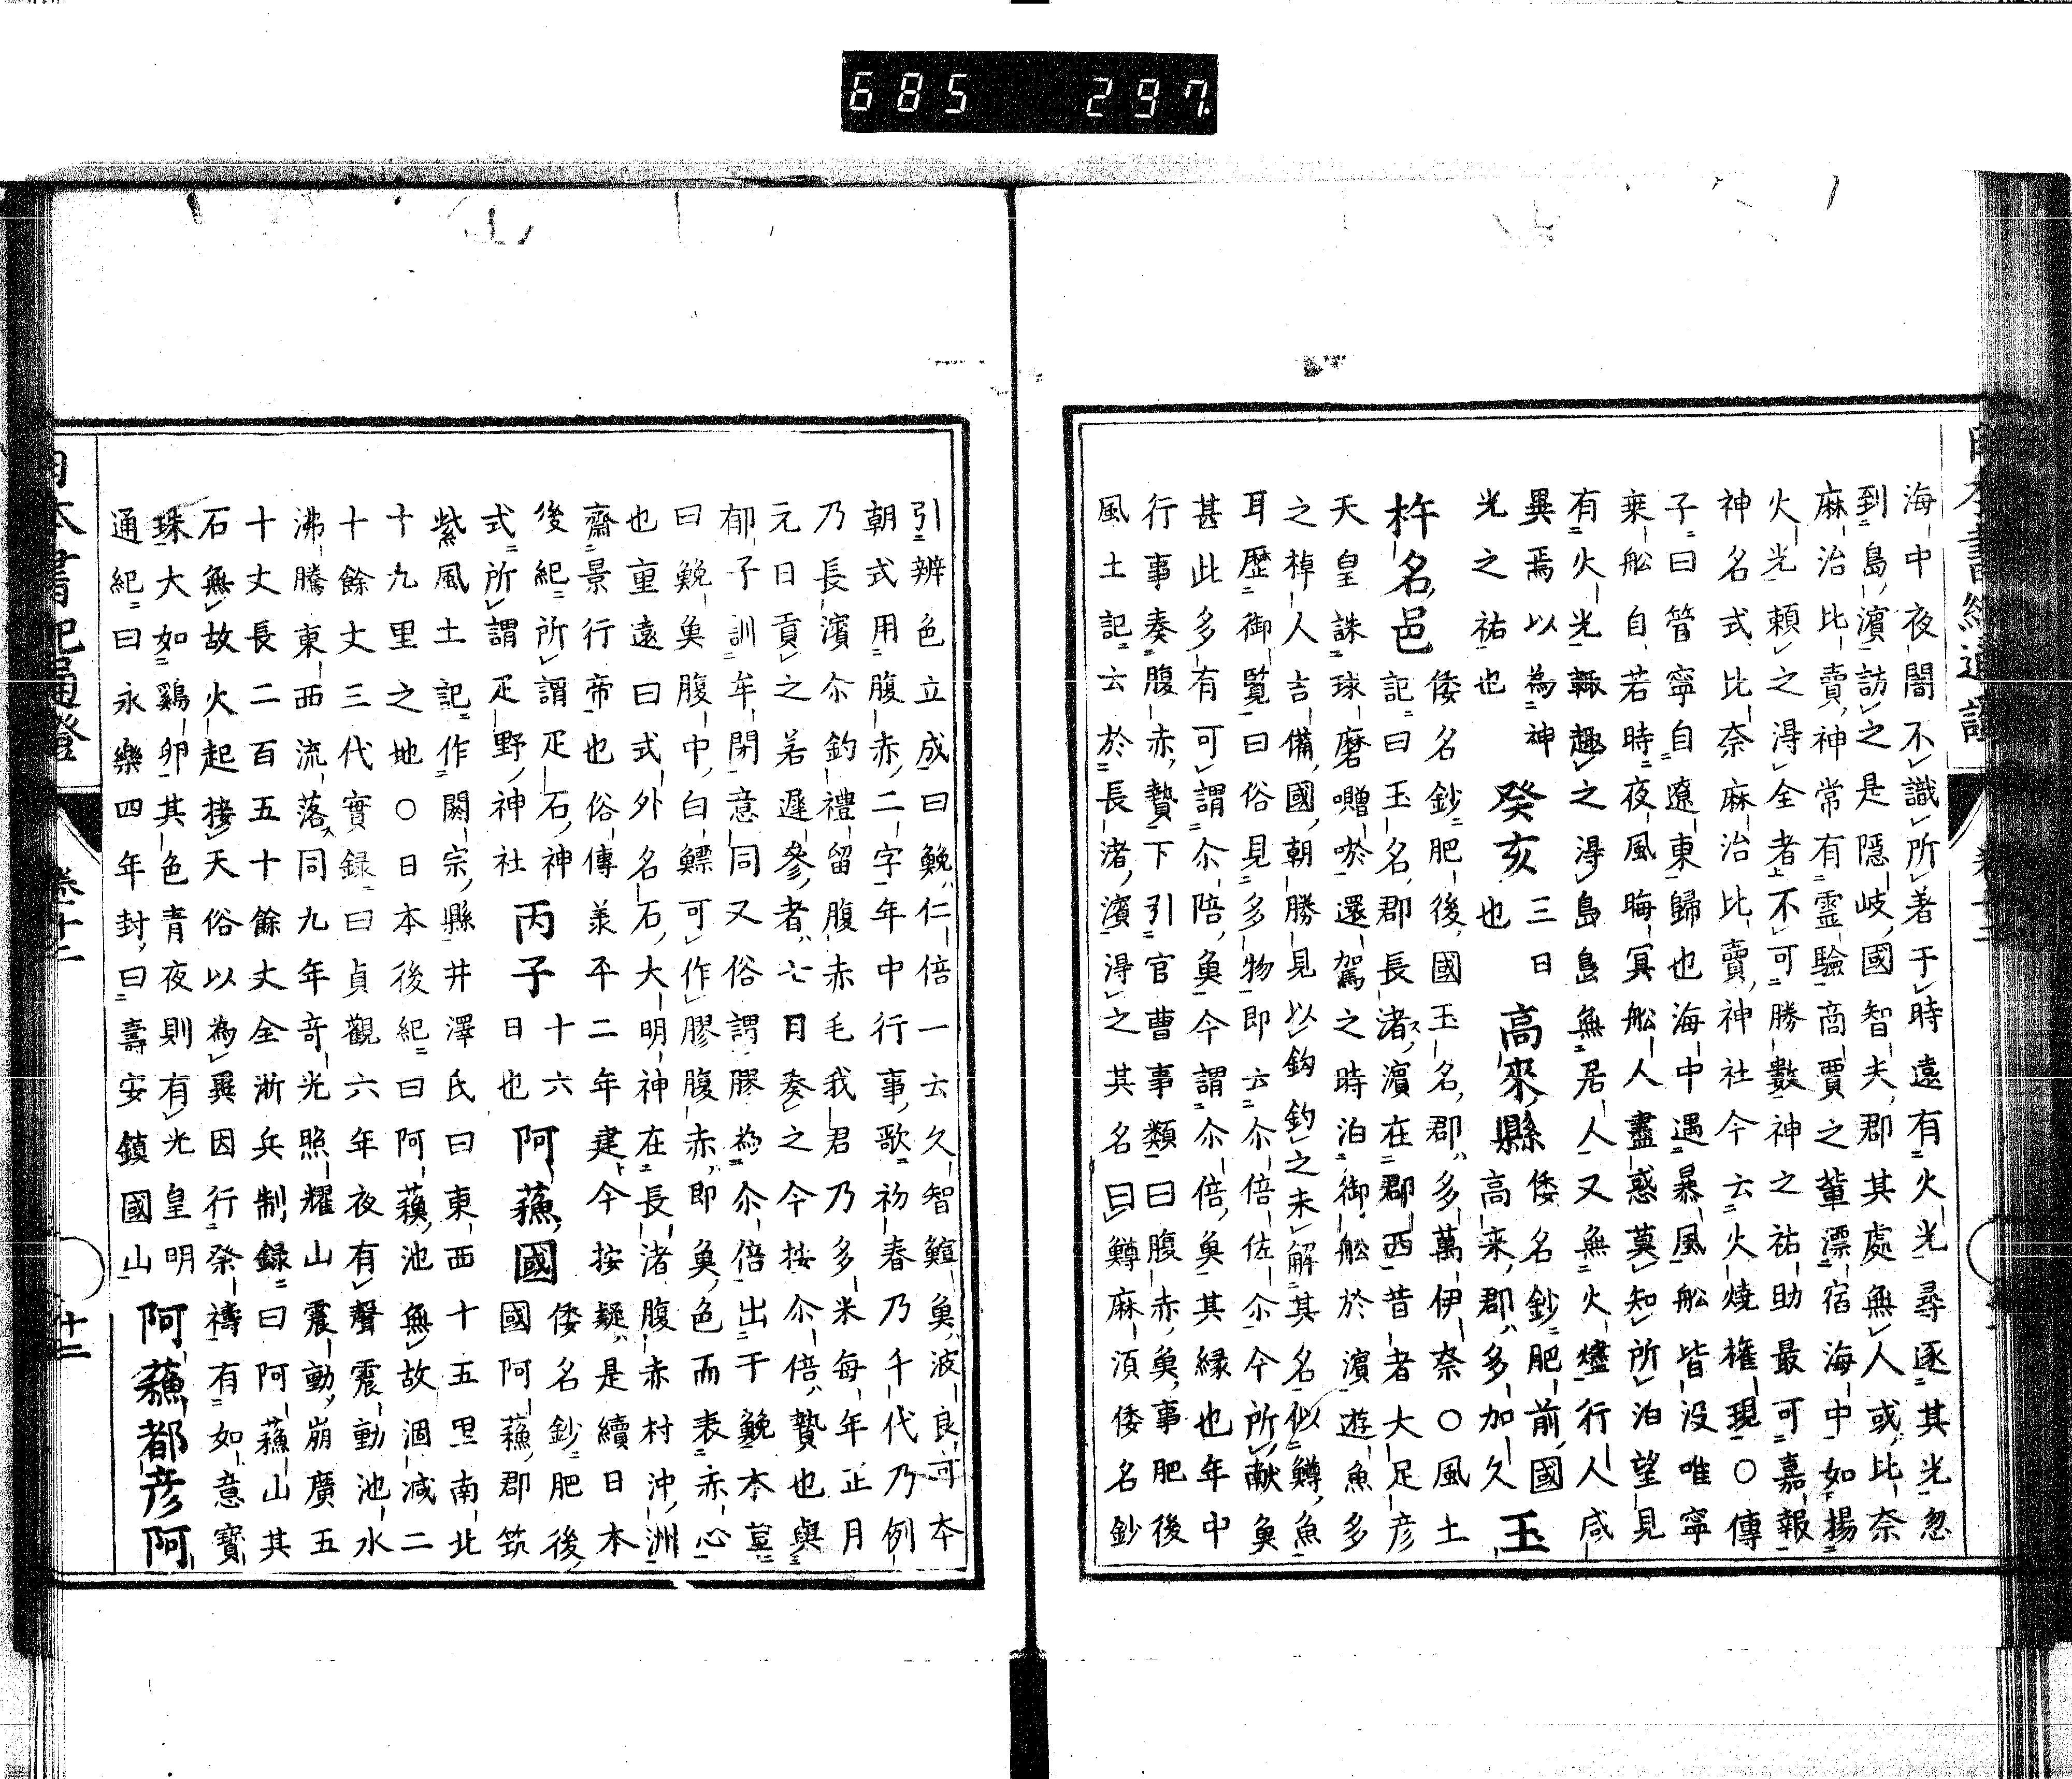 685 297
海中夜闇不識所著于時遠有火光尋逐其光忽
到島濱訪之是隱岐國智夫郡其處無人或比奈
麻治比賣神常有霊驗商賈之輩漂宿海中如揚
火光頼之淂全者不可勝數神之祐助最可嘉報
神名式比奈麻治比賣神社今云火燒権現○傳
子曰管寧自遼東歸也海中遇暴風舩皆没唯寧
乗舩自若時夜風晦冥舩人盡惑莫知所泊望見
有火光輙趣之淂島島無居人又無火燼行人咸
異焉以為神
光之祐也
癸亥三日也
高來縣倭名鈔肥前國高来郡多加久
玉
杵名邑倭名鈔肥後國玉名郡多萬伊奈○風土
記曰玉名郡長渚濱在郡西昔者大足彦
天皇誅球磨囎唹還駕之時泊御舩於濱遊魚多
之棹人吉備國朝勝見以鈎釣之未解其名似鱒魚
耳歴御覧曰俗見多物即云尒倍佐尒今所献魚
甚此多有可謂尒陪魚今謂尒倍魚其縁也年中
行事奏腹赤贄下引官曹事類曰腹赤魚事肥後
風土記云於長渚濱淂之其名曰鱒麻湏倭名鈔
引辨色立成曰鮸仁倍一云久智䱉魚波良可本
朝式用腹赤二字年中行事歌初春乃千代乃例
乃長濱尒釣禮留腹赤毛我君乃多米毎年正月
元日貢之若遅參者七日奏之今按尒倍贄也與
郁子訓牟閇意同又俗謂膠為尒倍出于鮸本草
曰鮸魚腹中白鰾可作膠腹赤即魚色而表赤心
也重遠曰式外名石大明神在長渚腹赤村沖洲
齋景行帝也俗傳羕平二年建今按疑是續日本
後紀所謂疋石神
式所謂疋野神社
丙子十六日也
阿蘓國倭名鈔肥後國阿蘓郡筑
紫風土記作閼宗縣井澤氏曰東西十五里南北
十九里之地○日本後紀曰阿蘓池無故涸减二
十餘丈三代實録曰貞觀六年夜有聲震動池水
沸騰東西流落同九年竒光照耀山震動崩廣五
十丈長二百五十餘丈全淅兵制録曰阿蘓山其
石無故火起接天俗以為異因行祭禱有如意寳
珠大如鷄卵其色青夜則有光皇明
通紀曰永樂四年封曰壽安鎮國山
阿蘓都彦阿
日本書紀通證
卷十二
十二